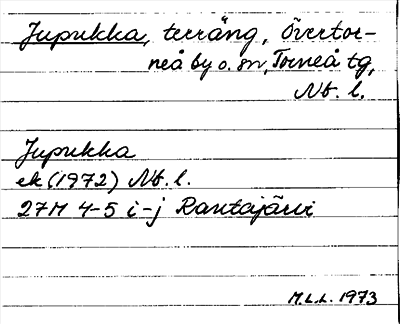 Jupukka, terräng, Övertor-
neå by o. sn, Torneå tg,
Nb. l.
Jupukka
ek (1972) Nb. l.
27M 4-5 i-j Rantajärvi
M.L.L. 1973